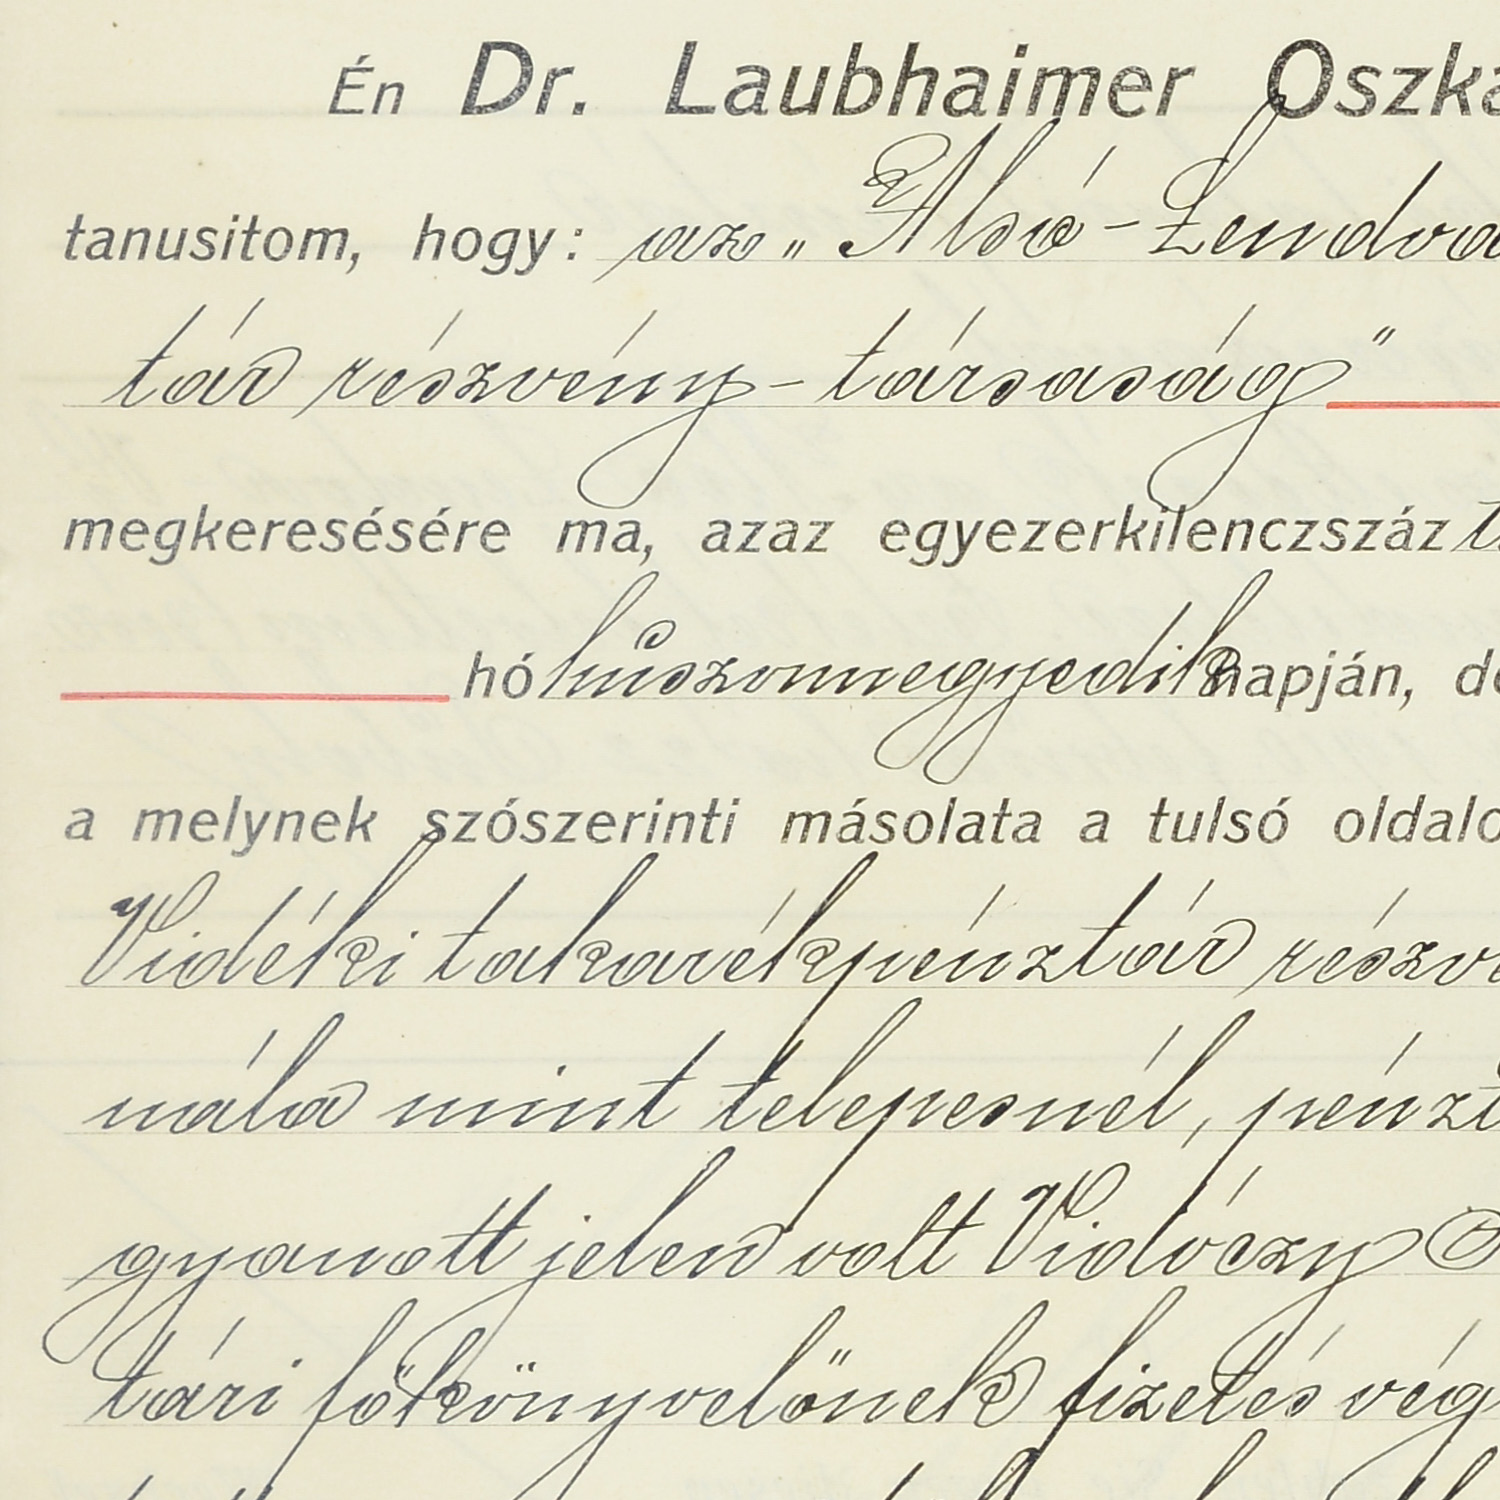 Én Dr. Laubhaimer Oszká
tanusitom, hogy: az „Alsó-Lendva
tár részvény-társaság"
megkeresésére ma, azaz egyezerkilenczszáz
hó húszonnegyedik napján, de
a melynek szószerinti másolata a tulsó oldalo
Vidéki takarékpénztár részv
nála mint telepesnél, pénzt
gyanott jelen volt Vidóczy
tári főkönyvelőnek fizetés vég